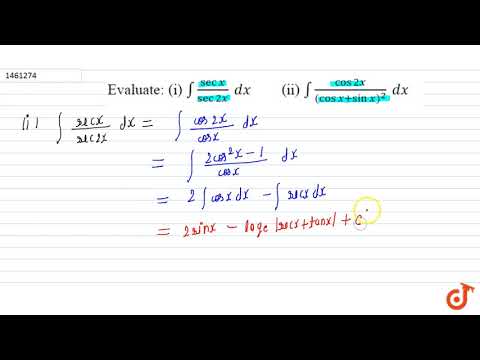 1461274
Evaluate: (i) ∫ sec x / sec 2x dx (ii) ∫ cos 2x / (cos x + sin x)² dx
(i) ∫ secx / sec2x dx = ∫ cos2x / cosx dx
= ∫ 2cos²x − 1 / cosx dx
= 2∫cosx dx − ∫secx dx
= 2sinx − loge |secx + tanx| + c